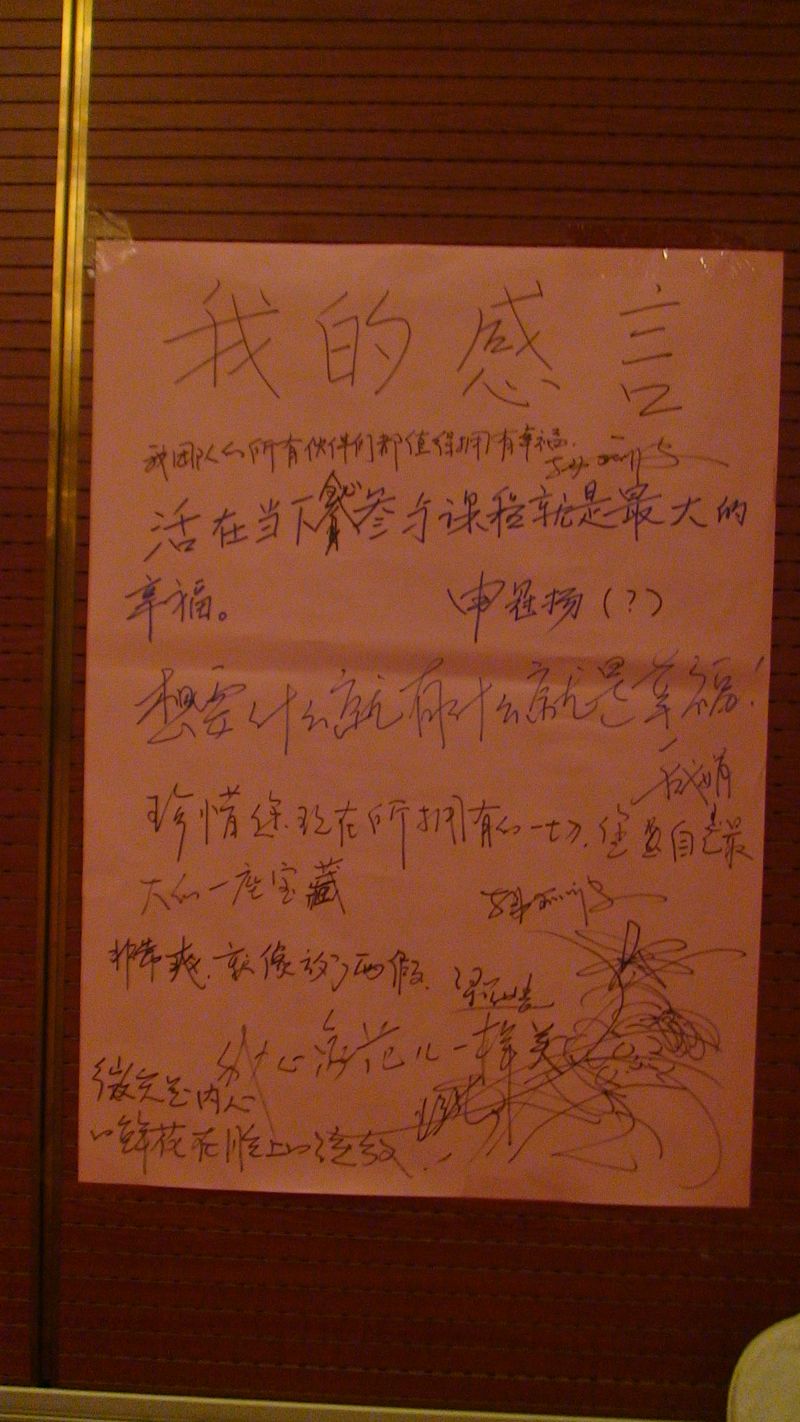 我的感言
我团队的所有伙伴们都值得拥有幸福.
活在当下参与课程就是最大的
幸福。 申冠扬(?)
想要什么就有什么就是幸福!
珍惜你现在所拥有的一切,你是自己最
大的一座宝藏
非常爽.就像放了两假.
我心象花儿一样美
微笑是内心
的鲜花在脸上的绽放.